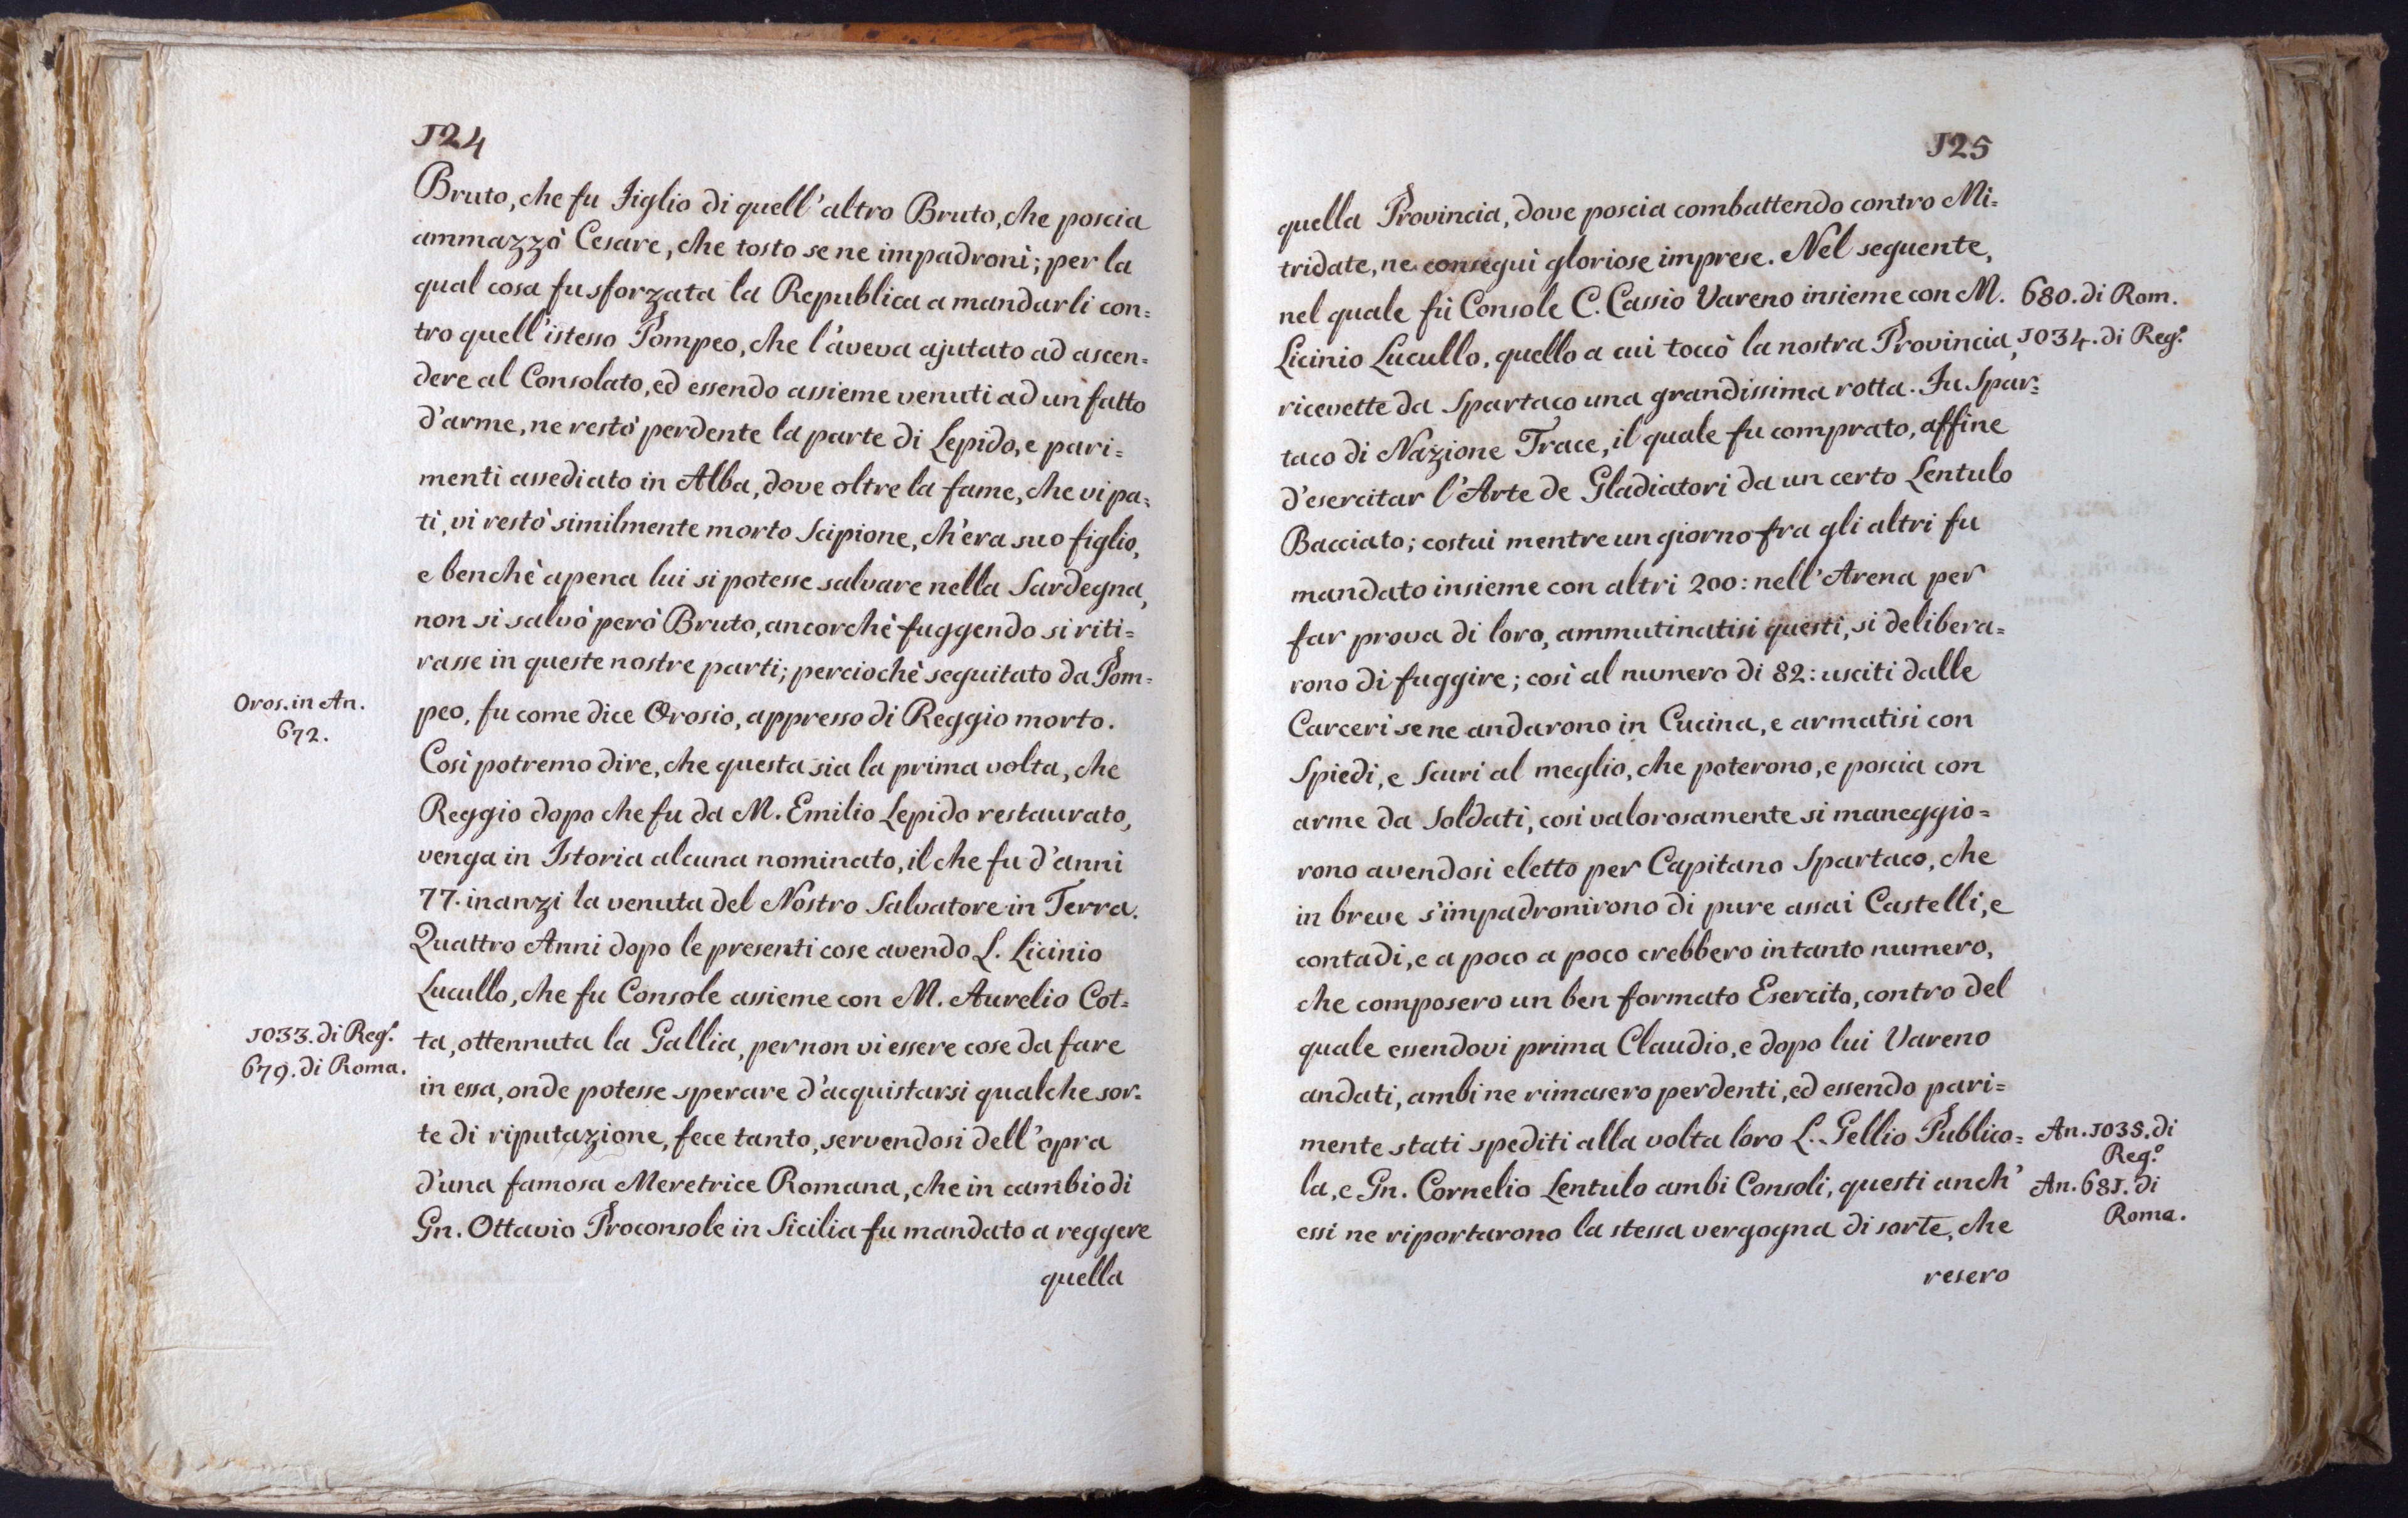 124
Bruto, che fu Figlio di quell'altro Bruto, che poscia
ammazzò Cesare, che tosto se ne impadronì; per la
qual cosa fu sforzata la Republica a mandarli con=
tro quell'istesso Pompeo, che l'aveva ajutato ad ascen=
dere al Consolato, ed essendo assieme venuti ad un fatto
d'arme, ne restò perdente la parte di Lepido, e pari=
menti assediato in Alba, dove oltre la fame, che vi pa=
tì, vi restò similmente morto Scipione, ch'era suo figlio,
e benchè apena lui si potesse salvare nella Sardegna,
non si salvò però Bruto, ancorchè fuggendo si riti=
rasse in queste nostre parti; perciochè seguitato da Pom=
Oros. in An.
672.
peo, fu come dice Orosio, appresso di Reggio morto.
Così potremo dire, che questa sia la prima volta, che
Reggio dopo che fu da M. Emilio Lepido restaurato,
venga in Istoria alcuna nominato, il che fu d'anni
77. inanzi la venuta del Nostro Salvatore in Terra.
Quattro Anni dopo le presenti cose avendo L. Licinio
Lucullo, che fu Console assieme con M. Aurelio Cot=
1033. di Reg.º
679. di Roma.
ta, ottennuta la Gallia, per non vi essere cose da fare
in essa, onde potesse sperare d'acquistarsi qualche sor=
te di riputazione, fece tanto, servendosi dell'opra
d'una famosa Meretrice Romana, che in cambio di
Gn. Ottavio Proconsole in Sicilia fu mandato a reggere
quella
125
quella Provincia, dove poscia combattendo contro Mi=
tridate, ne conseguì gloriose imprese. Nel seguente,
nel quale fù Console C. Cassio Vareno insieme con M.
680. di Rom.
Licinio Lucullo, quello a cui toccò la nostra Provincia,
1034. di Reg.º
ricevette da Spartaco una grandissima rotta. Fu Spar=
taco di Nazione Trace, il quale fu comprato, affine
d'esercitar l'Arte de Gladiatori da un certo Lentulo
Bacciato; costui mentre un giorno fra gli altri fu
mandato insieme con altri 200: nell'Arena per
far prova di loro, ammutinatisi questi, si delibera=
rono di fuggire; così al numero di 82: usciti dalle
Carceri se ne andarono in Cucina, e armatisi con
Spiedi, e Scuri al meglio, che poterono, e poscia con
arme da Soldati, così valorosamente si maneggio=
rono avendosi eletto per Capitano Spartaco, che
in breve s'impadronirono di pure assai Castelli, e
contadi, e a poco a poco crebbero in tanto numero,
che composero un ben formato Esercito, contro del
quale essendovi prima Claudio, e dopo lui Vareno
andati, ambi ne rimasero perdenti, ed essendo pari=
mente stati spediti alla volta loro L. Gellio Publico=
An. 1035. di
Reg.º
la, e Gn. Cornelio Lentulo ambi Consoli, questi anch'
An. 681. di
Roma.
essi ne riportarono la stessa vergogna di sorte, che
resero